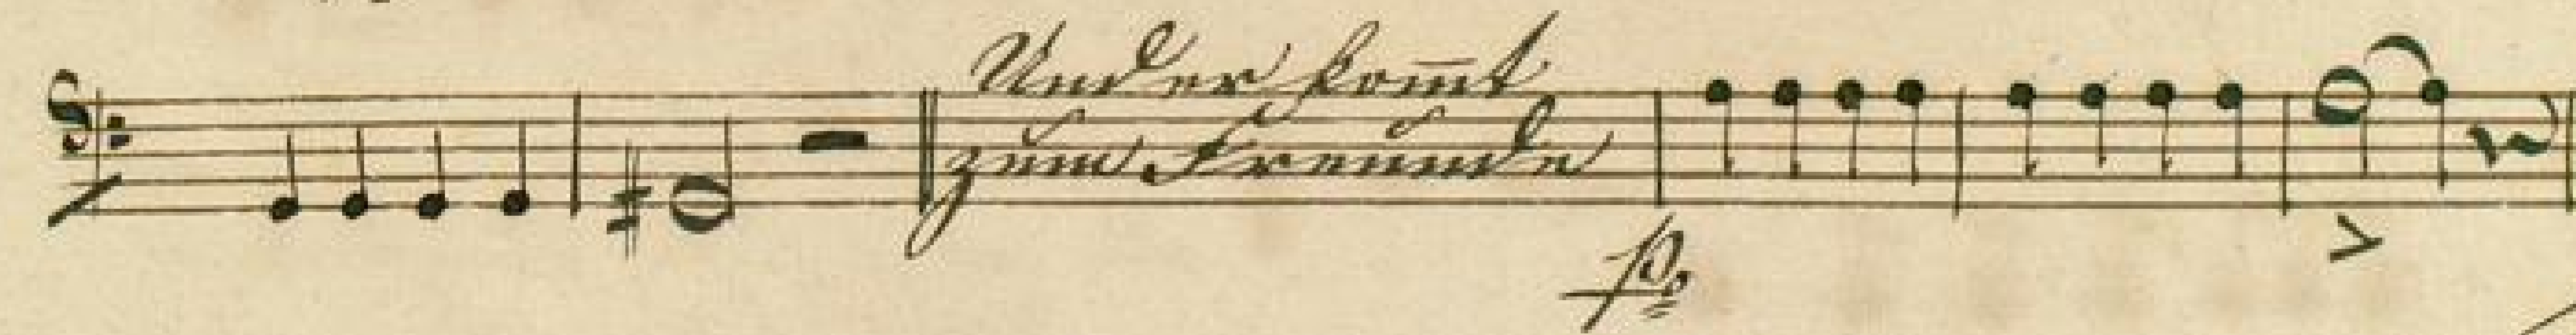 Und er kom̅t
zum Freunde
p.